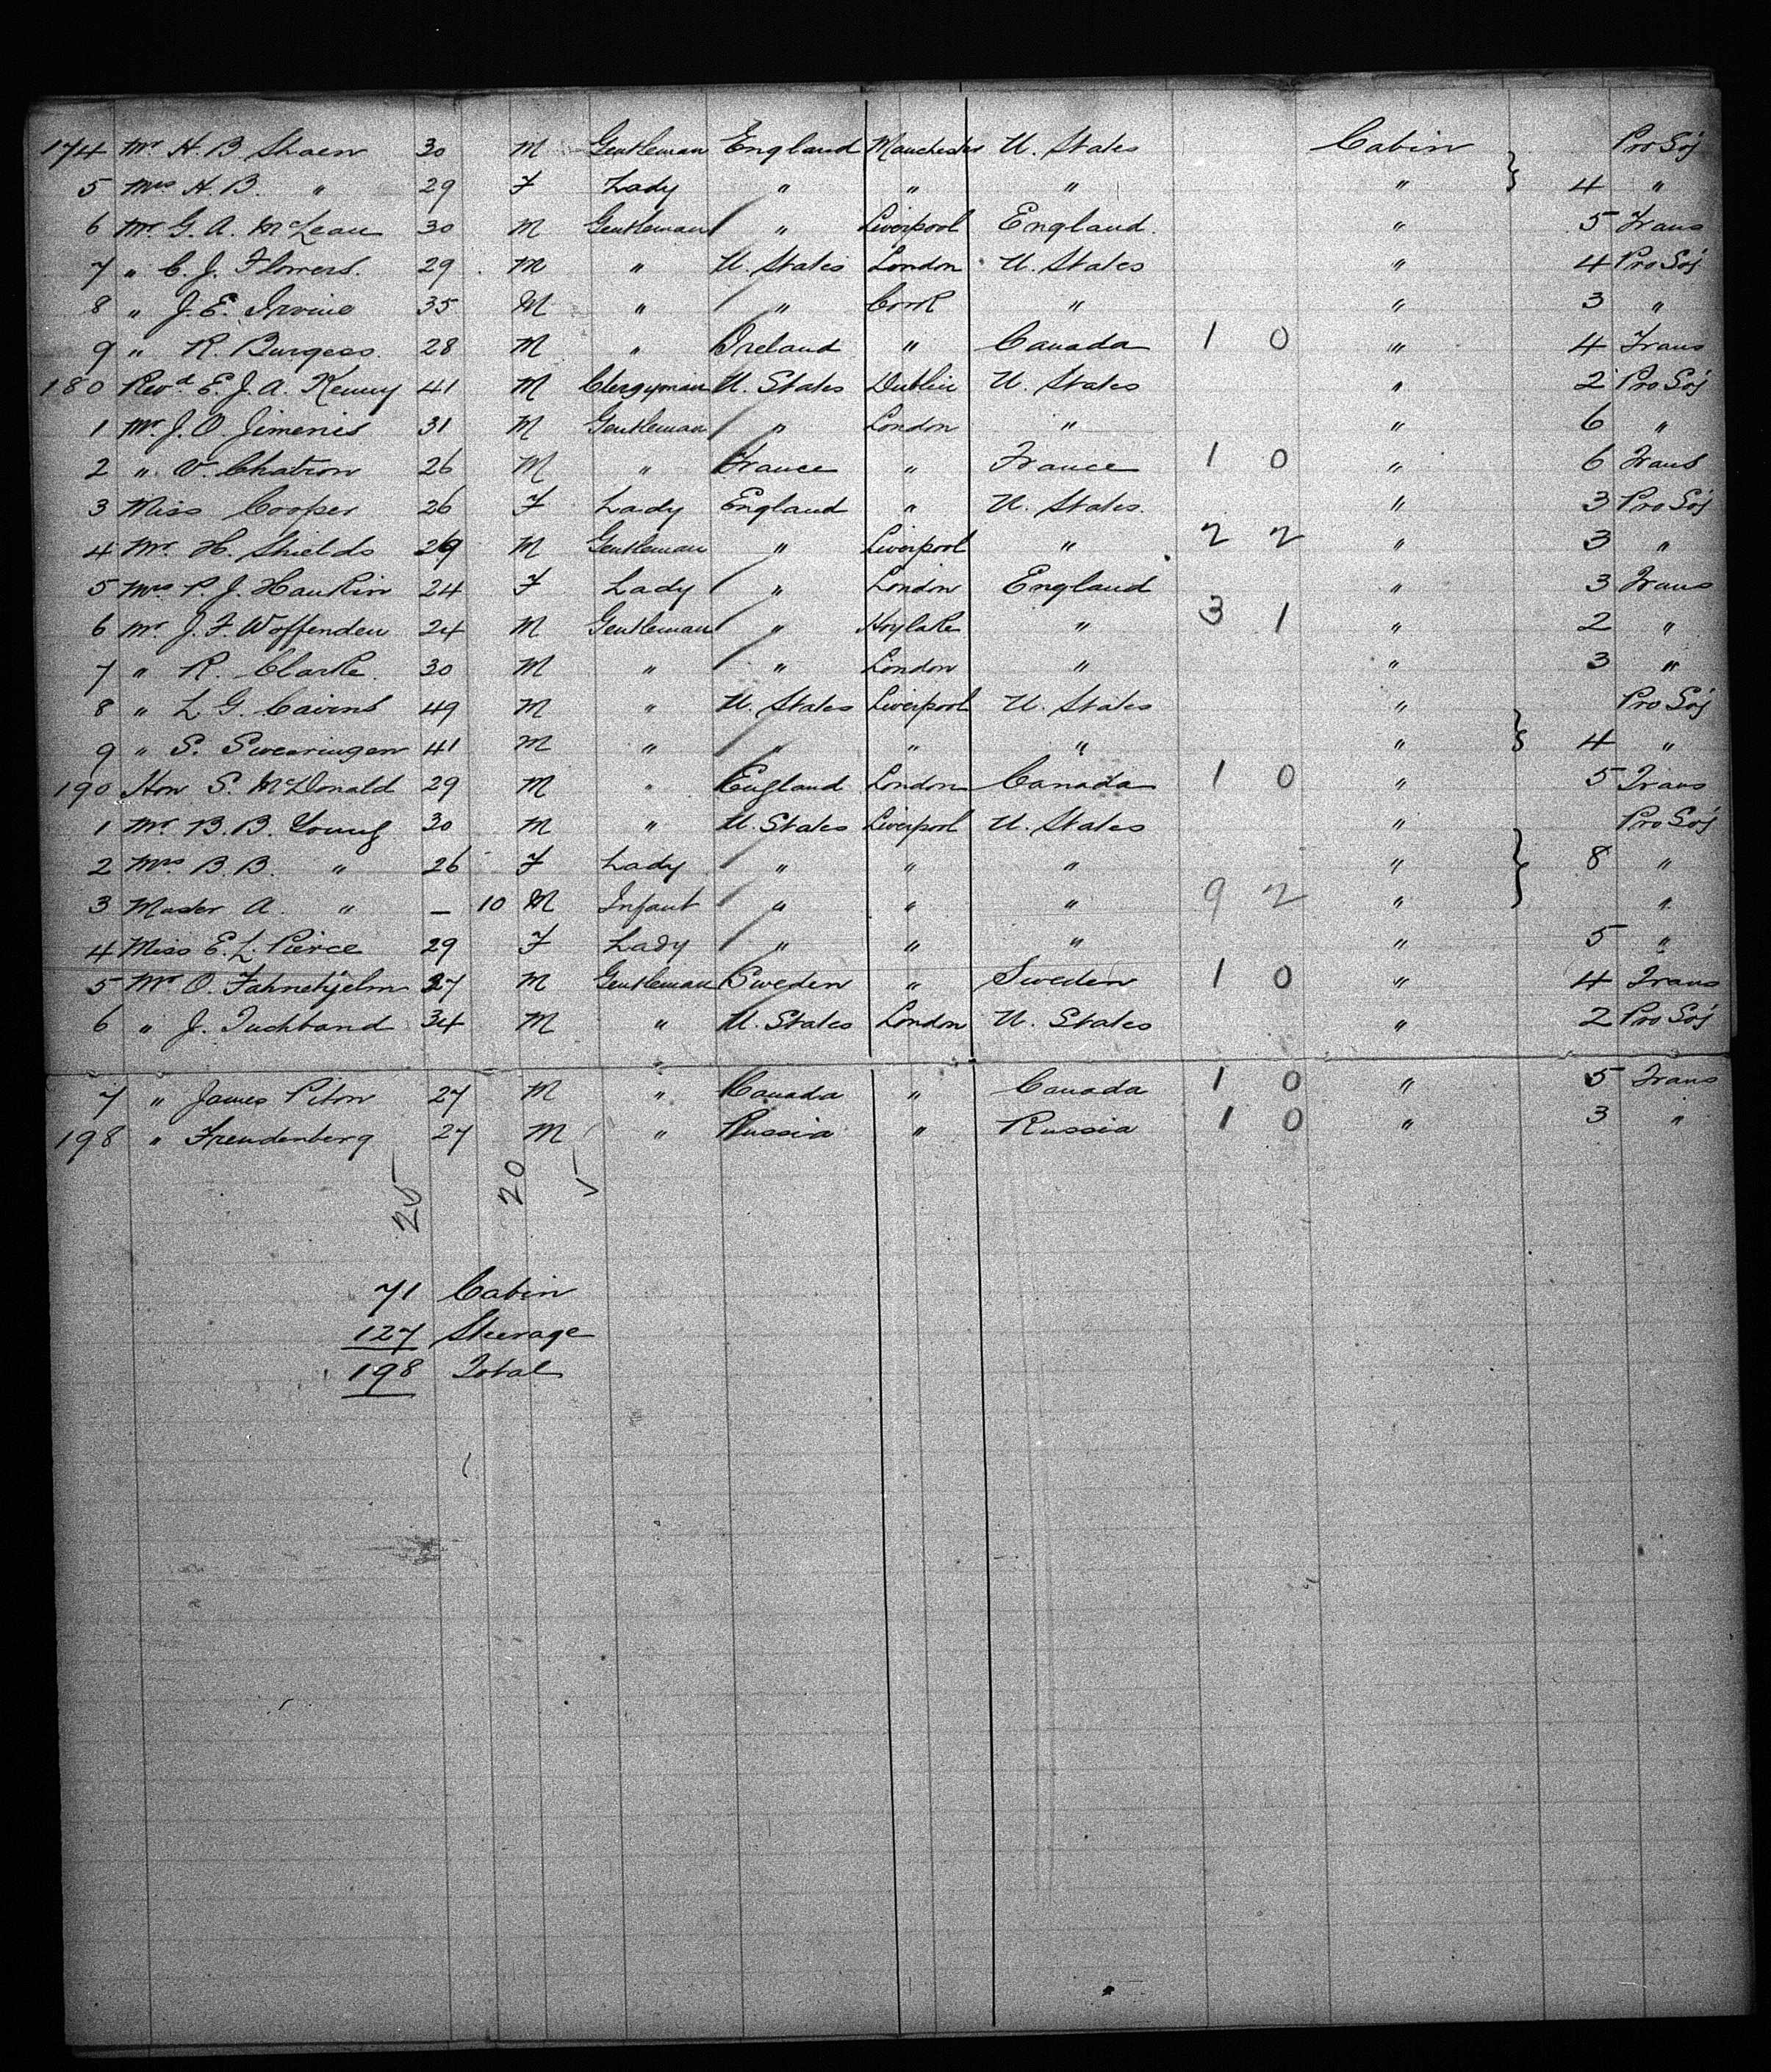 174 Mr H. B. Shaen 30 M Gentleman England Manchester U. States Cabin Pro Soj
5 Mrs H. B. " 29 F Lady " " " " } 4 "
6 Mr G. A. McLean 30 M Gentleman " Liverpool England " 5 Trans
7 " C. J. Flowers. 29 M " U. States London U. States " 4 Pro Soj
8 " J. E. Irvine 35 M " " Cork " " 3 "
9 " R. Burgess. 28 M " Ireland " Canada 1 0 " 4 Trans
180 Revd E. J. A. Kenny 41 M Clergyman U. States Dublin U. States " 2 Pro Soj
1 Mr. J. O. Jimenis 31 M Gentleman " London " " 6 "
2 " V. Chatron 26 M " France " France 1 0 " 6 Trans
3 Miss Cooper 26 F Lady England " U. States. " 3 Pro Soj
4 Mr. H. Shields 29 M Gentleman " Liverpool " 2 2 " 3 "
5 Mrs P. J. Hankin 24 F Lady " London England " 3 Trans
6 Mr J. F. Woffenden 24 M Gentleman " Hoylake " 3 1 " 2 "
7 " R. Clarke. 30 M " " London " " 3 "
8 " L. G. Cairns 49 M " U. States Liverpool U. States " Pro Soj
9 " S. Swearingen 41 M " " " " " } 4 "
190 Hon S. McDonald 29 M " England London Canada 1 0 " 5 Trans
1 Mr B. B. Young 30 M " U. States Liverpool U. States " Pro Soj
2 Mrs B. B. " 26 F Lady " " " " } 8 "
3 Master A. " — 10 M Infant " " " 9 2 " "
4 Miss E. L. Pierce 29 F Lady " " " " 5 "
5 Mr O. Fahnehjelm 27 M Gentleman Sweden " Sweden 1 0 " 4 Trans
6 " J. Tuchband 34 M " U. States London U. States " 2 Pro Soj
7 " James Piton 27 M " Canada " Canada 1 0 " 5 Trans
198 " Freudenberg 27 M " Russia " Russia 1 0 " 3 "
25 20 5
71 Cabin
127 Steerage
198 Total